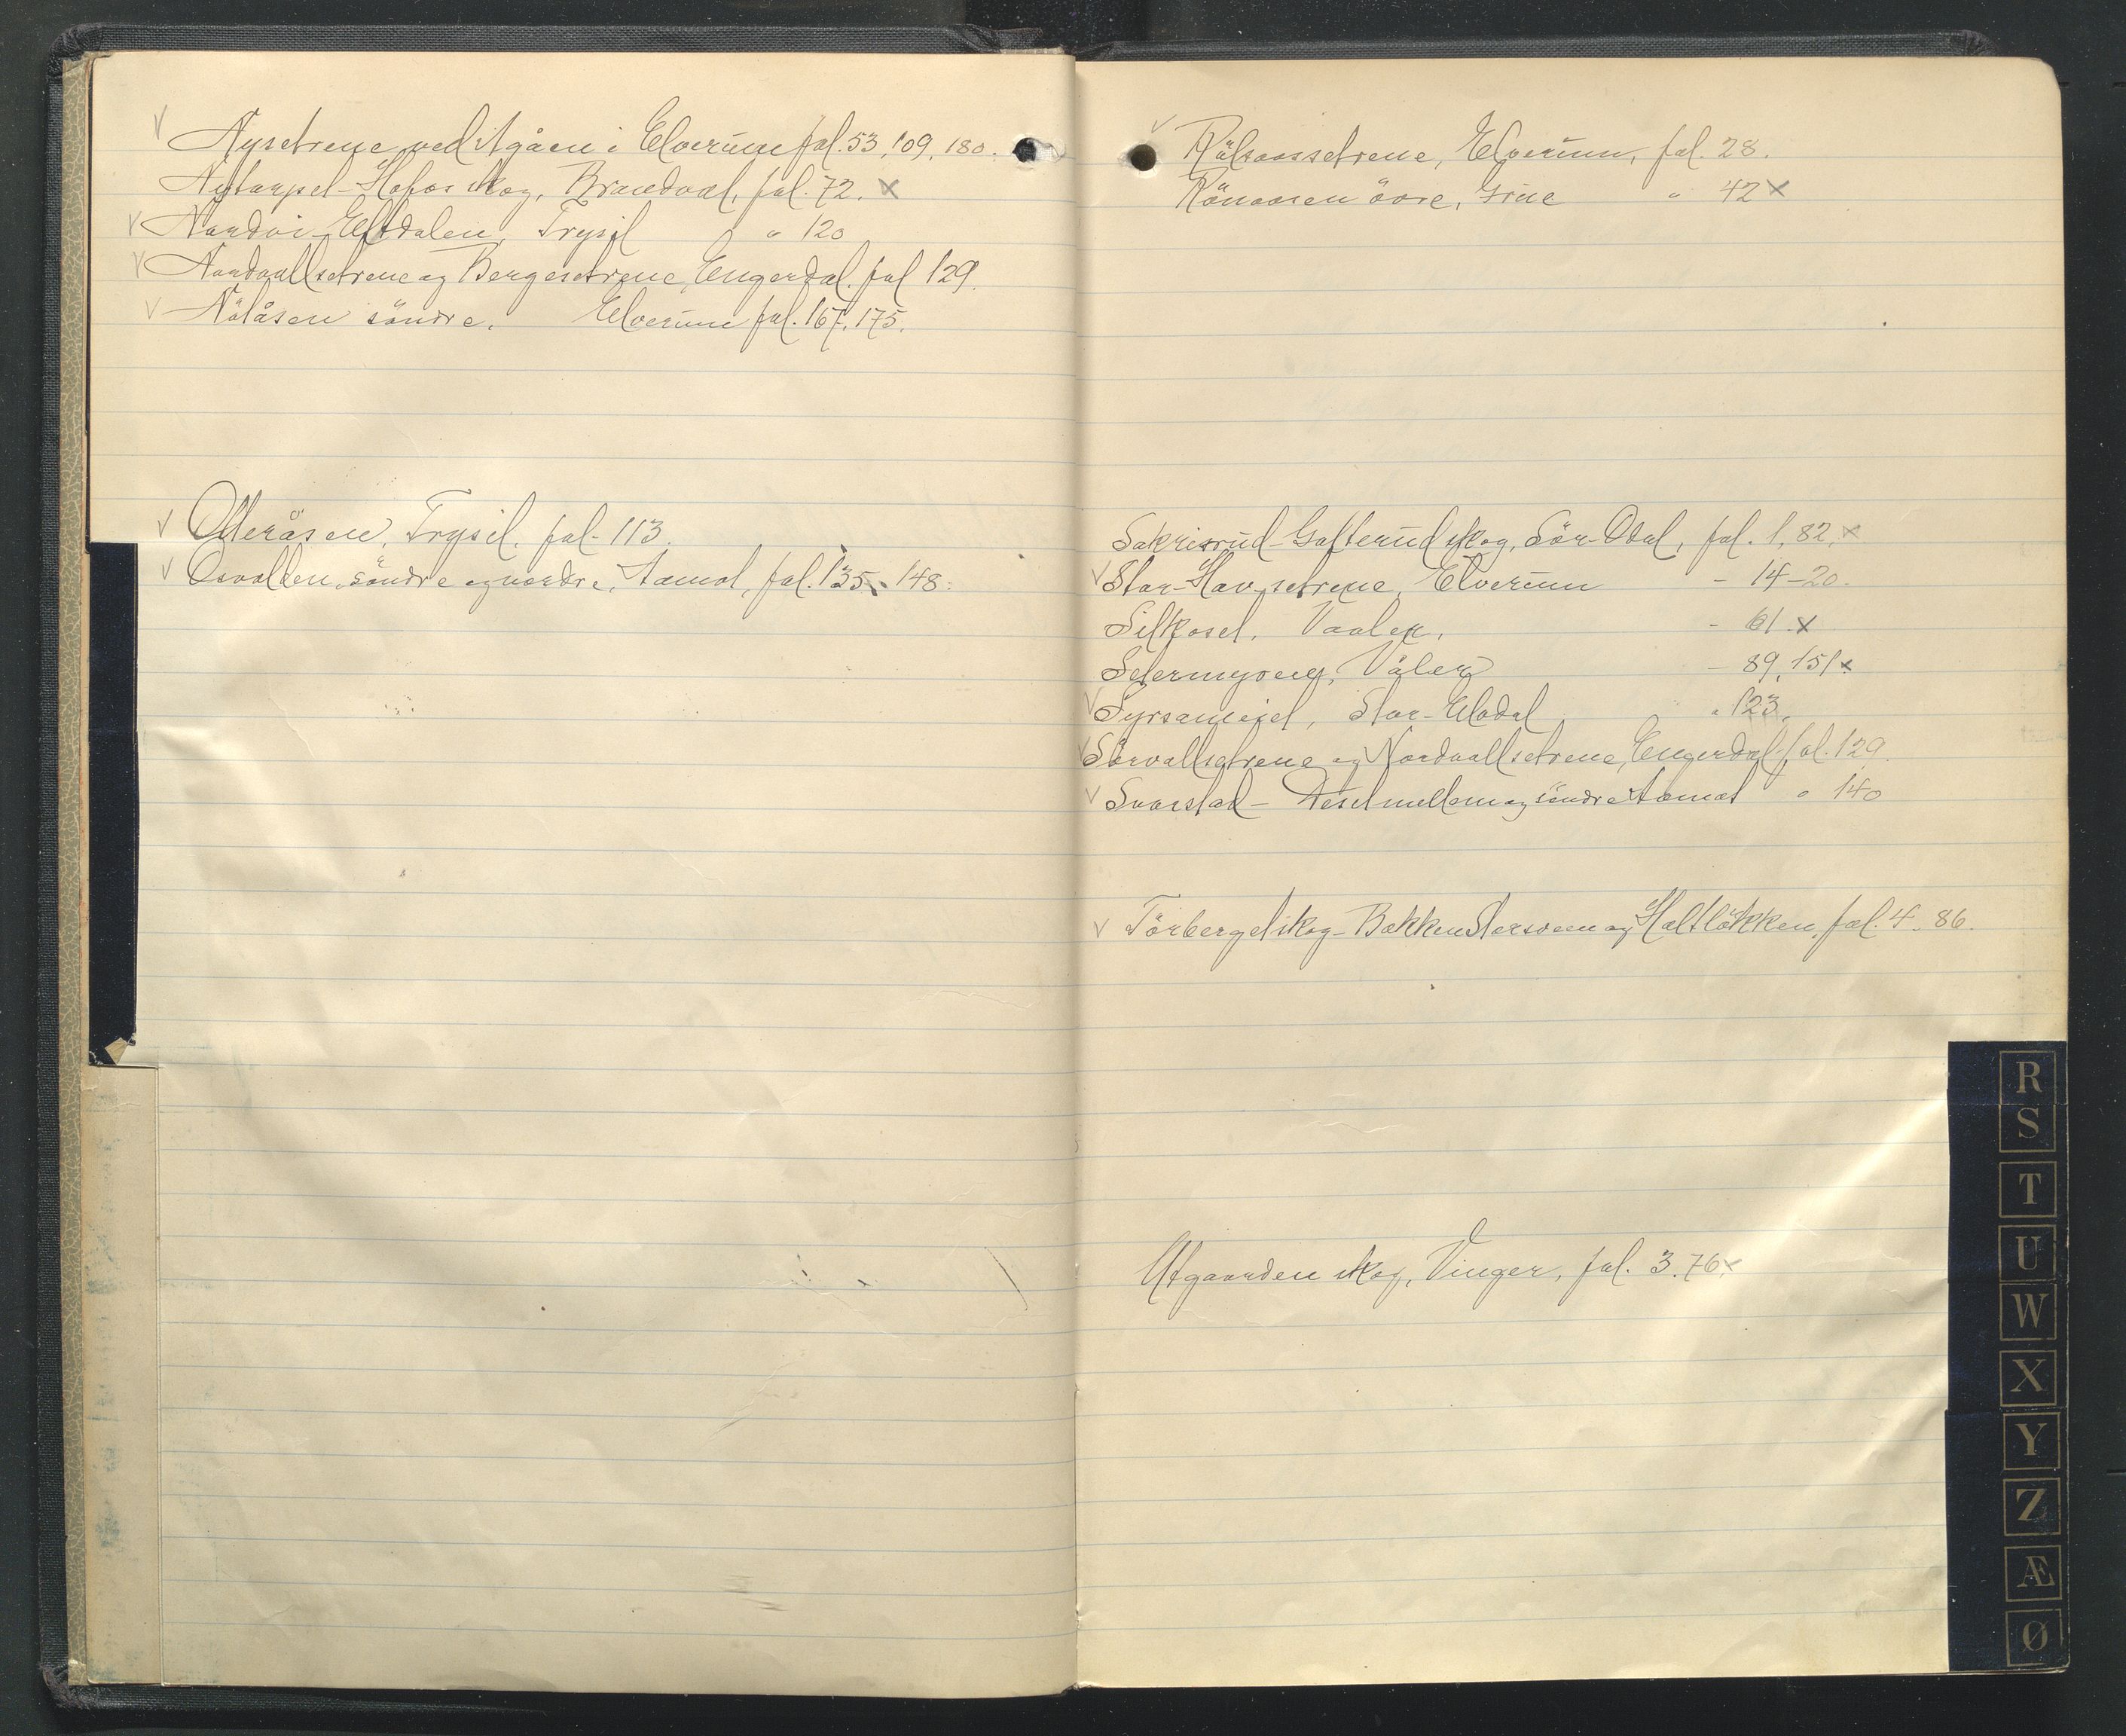 √ Nysetrene ved Itgåen i Elverum fol. 53, 109, 180.
Nytorpet-Hofos skog, Brandval, fol. 72. x
√ Nordvi-Eltdalen, Trysil " 120
√ Nordvallsetrene og Bergesetrene, Engerdal. fol 129.
√ Nölåsen söndre. Elverum fol. 167, 175.
√ Olleråsen, Trysil. fol. 113.
√ Osvolden, söndre og nordre, Aamot, fol. 135, 148.
√ Rålsaassetrene, Elverum, fol. 28.
Rönaasen övre, Grue " 42 x
Sakrisrud-Gulterud skog, Sör-Odal, fol. 1, 82, x
√ Stor-Hav-setrene, Elverum - 14-20.
Silkoset, Vaaler, - 61 x
Setermyreng, Våler - 89, 151 x
√ Store-Elvdal " 123.
√ Sörvallsetrene og Nordvallsetrene, Engerdal, fol. 129.
√ Svarstad - Aeset mellem og söndre Aamot " 140
√ Törberget skog - Bakken og Haltlökken, fol. 4. 86.
Utgaarden skog, Vinger, fol. 3. 76 x
R
S
T
U
W
X
Y
Z
Æ
Ø